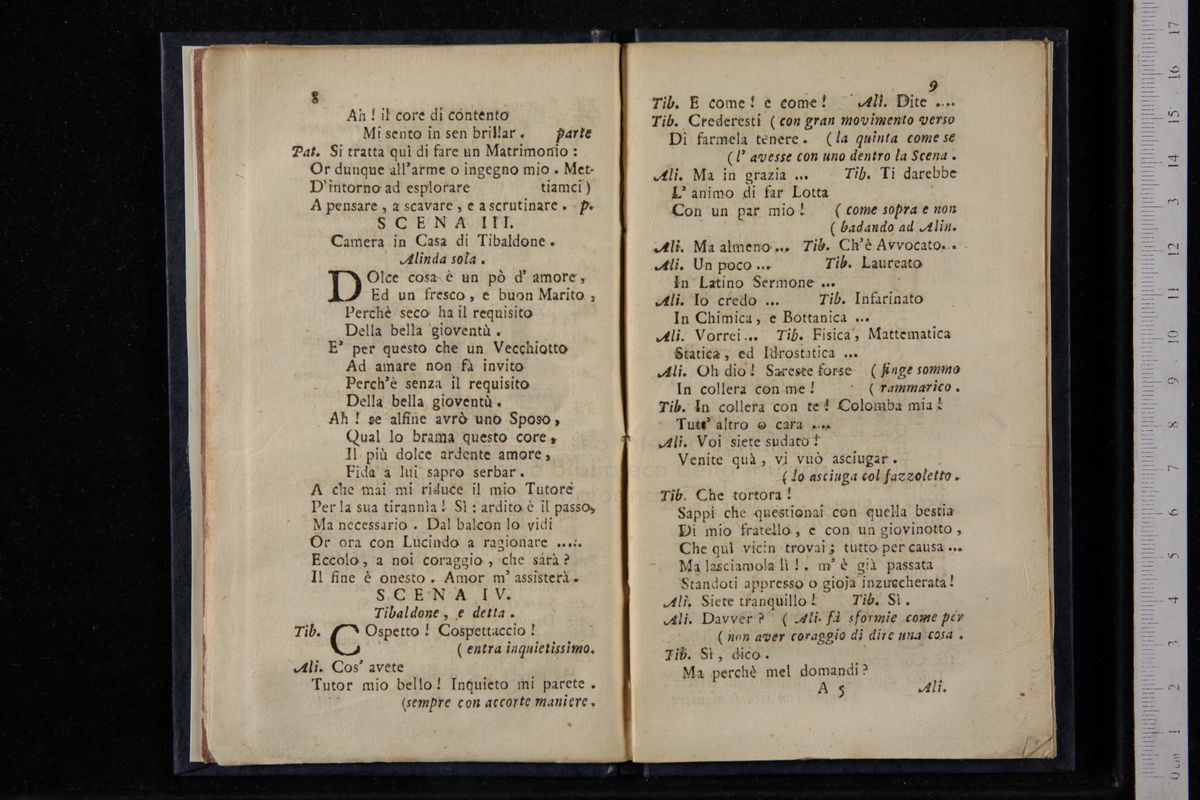 8
Ah ! il core di contento
Mi sento in sen brillar . parte
Pat. Si tratta quì di fare un Matrimonio :
Or dunque all'arme o ingegno mio . Met-
D'intorno ad esplorare tiamci )
A pensare , a scavare , e a scrutinare . p.
SCENA III.
Camera in Casa di Tibaldone .
Alinda sola .
DOlce cosa è un pò d' amore ,
Ed un fresco , e buon Marito ,
Perchè seco ha il requisito
Della bella gioventù .
E' per questo che un Vecchiotto
Ad amare non fà invito
Perch'è senza il requisito
Della bella gioventù .
Ah ! se alfine avrò uno Sposo ,
Qual lo brama questo core ,
Il più dolce ardente amore ,
Fida a lui sapro serbar .
A che mai mi riduce il mio Tutore
Per la sua tirannìa ! Sì : ardito è il passo ,
Ma necessario . Dal balcon lo vidi
Or ora con Lucindo a ragionare .....
Eccolo , a noi coraggio , che sarà ?
Il fine è onesto . Amor m' assisterà .
SCENA IV.
Tibaldone , e detta .
Tib. COspetto ! Cospettaccio !
( entra inquietissimo .
Ali. Cos' avete
Tutor mio bello ! Inquieto mi parete .
(sempre con accorte maniere .
9
Tib. E come ! e come ! Ali. Dite ....
Tib. Crederesti ( con gran movimento verso
Di farmela tenere . ( la quinta come se
( l' avesse con uno dentro la Scena .
Ali. Ma in grazia ... Tib. Ti darebbe
L' animo di far Lotta
Con un par mio ! ( come sopra e non
( badando ad Alin.
Ali. Ma almeno ... Tib. Ch'è Avvocato ..
Ali. Un poco ... Tib. Laureato
In Latino Sermone ...
Ali. Io credo ... Tib. Infarinato
In Chimica , e Bottanica ...
Ali. Vorrei ... Tib. Fisica , Mattematica
Statica , ed Idrostatica ...
Ali. Oh dio ! Sareste forse ( finge sommo
In collera con me ! ( rammarico .
Tib. In collera con te ! Colomba mia !
Tutt' altro o cara ....
Ali. Voi siete sudato !
Venite quà , vi vuò asciugar .
( lo asciuga col fazzoletto .
Tib. Che tortora !
Sappi che questionai con quella bestia
Di mio fratello , e con un giovinotto ,
Che quì vicin trovai ; tutto per causa ...
Ma lasciamola lì ! . m' è già passata
Standoti appresso o gioja inzuccherata !
Ali. Siete tranquillo ! Tib. Sì .
Ali. Davver ? ( Ali. fà sformie come per
( non aver coraggio di dire una cosa .
Tib. Sì , dico .
Ma perchè mel domandi ?
A 5 Ali.
17
16
15
14
13
12
11
10
9
8
7
6
5
4
3
2
1
0 cm